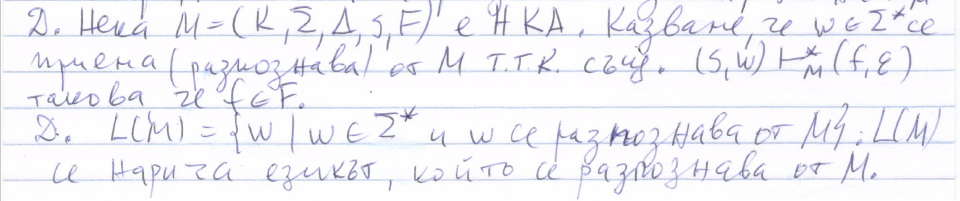 Д. Нека M=(K,Σ,Δ,s,F) е НКА. Казваме, че w∈Σ* се
приема (разпознава) от M т.т.к. същ. (s,w) ⊢*_M (f,ε)
такова че f∈F.
Д. L(M) = {w | w∈Σ* и w се разпознава от M}. L(M)
се нарича езикът, който се разпознава от M.